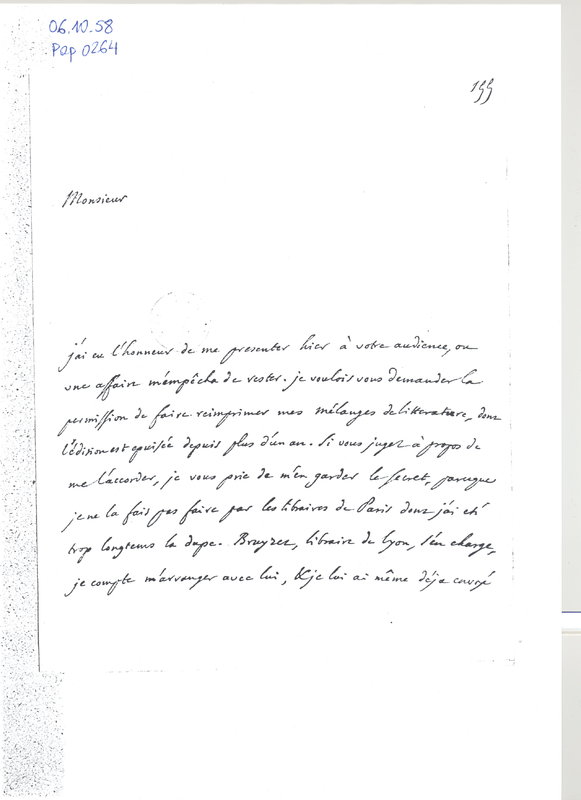 06.10.58
Pap 0264
155
Monsieur
j'ai eu l'honneur de me presenter hier à votre audience, ou
une affaire m'empêcha de rester. je voulois vous demander la
permission de faire reimprimer mes mélanges de litterature, dont
l'édition est epuisée depuis plus d'un an. Si vous jugez à propos de
me l'accorder, je vous prie de m'en garder le secret, parceque
je ne la fais pas faire par les libraires de Paris dont j'ai eté
trop longtems la dupe. Bruyzet, libraire de Lyon, s'en charge,
je compte m'arranger avec lui, & je lui ai même déja envoyé